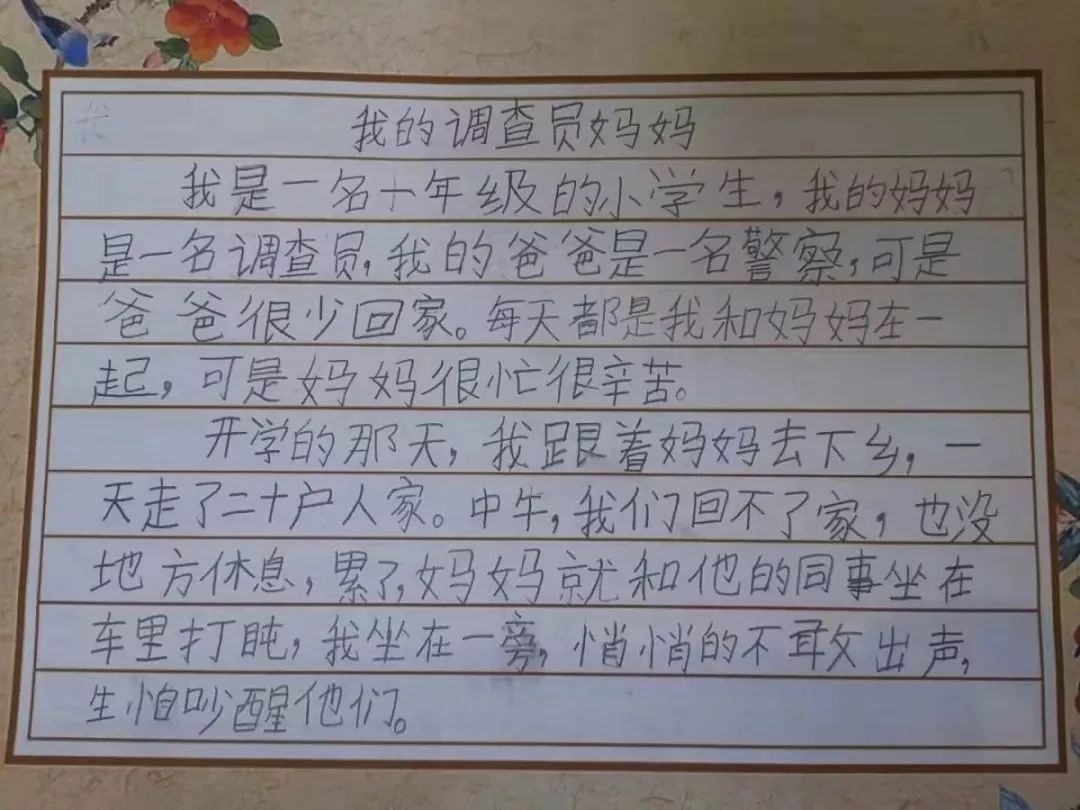 我的调查员妈妈
我是一名十年级的小学生,我的妈妈
是一名调查员,我的爸爸是一名警察,可是
爸爸很少回家。每天都是我和妈妈在一
起,可是妈妈很忙很辛苦。
开学的那天,我跟着妈妈去下乡,一
天走了二十户人家。中牛,我们回不了家,也没
地方休息,累了,妈妈就和他的同事坐在
车里打盹,我坐在一旁,悄悄的不敢出声,
生怕吵醒他们。